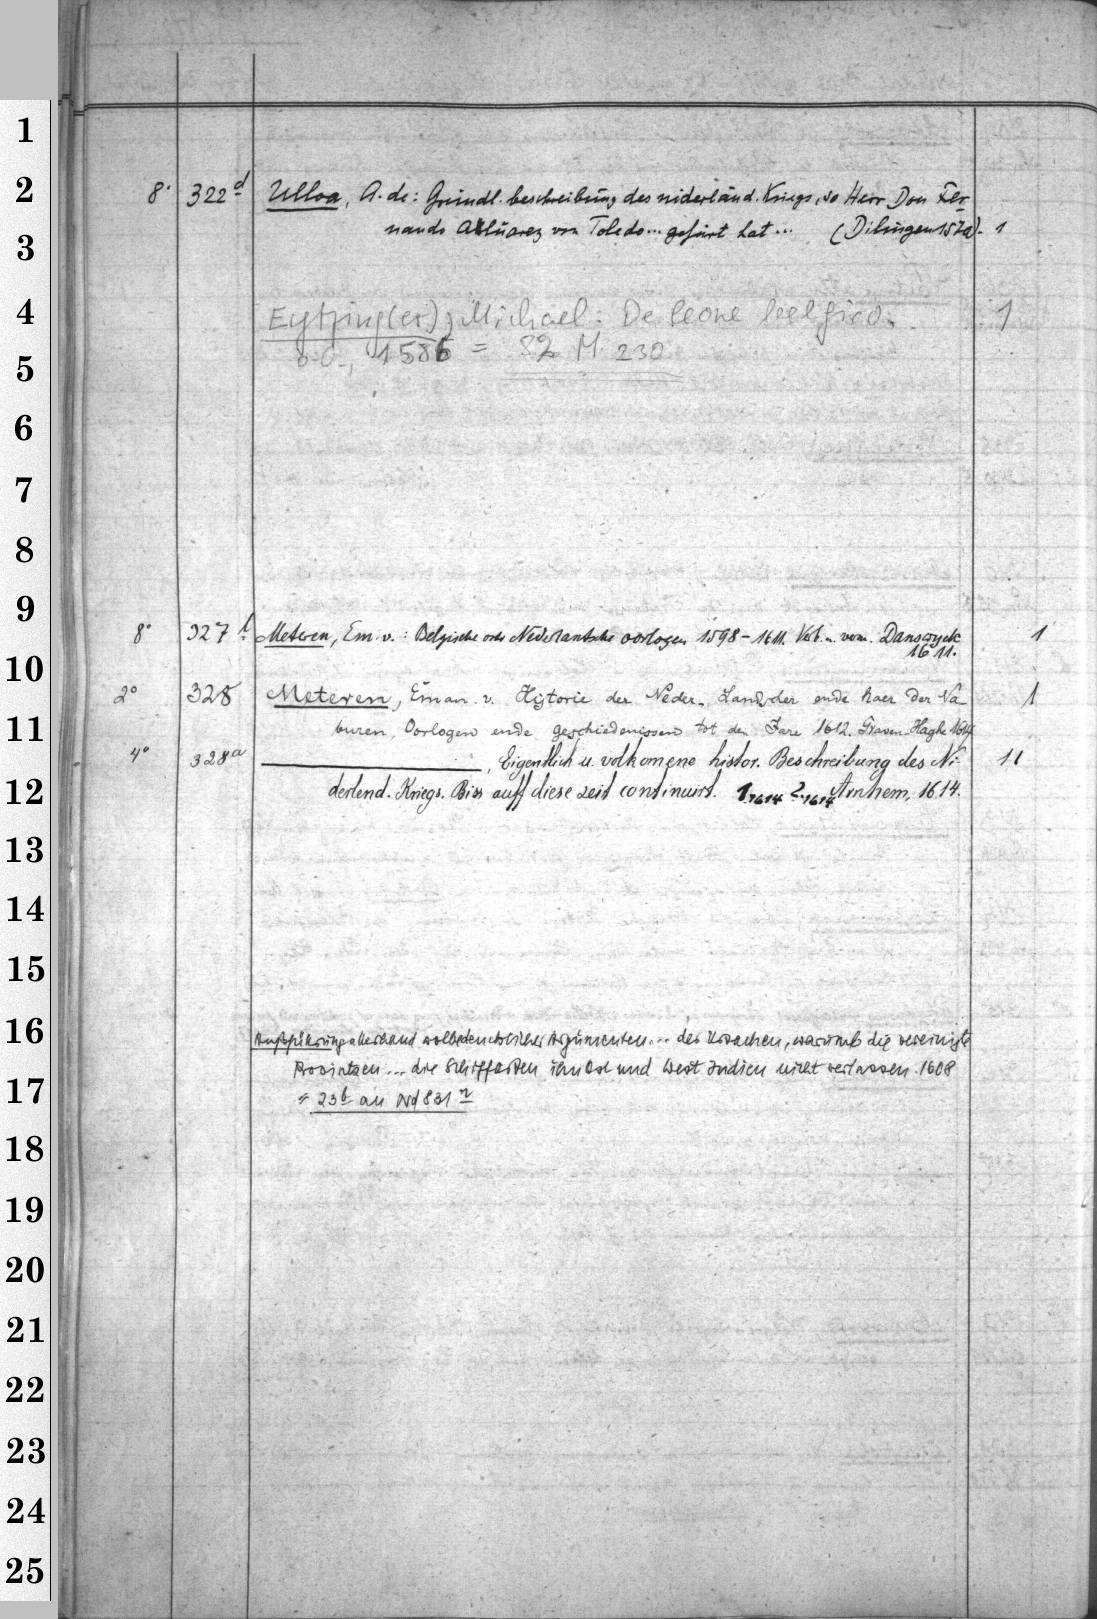 1
2
8° 322d Ulloa, A. de: Gründl. beschreibung des niderländ. Kriegs, so Herr Don Fer-
3
nando Alüarez von Toledo... gefürt hat... (Dilingen 1570). 1
4
Eytzing(er), Michael: De Leone Belgico. 1
5
o.O., 1586 = 82 M 230
6
7
8
9
8° 327 Meteren, Em. v.: Belgische ofte Nederlantsche oorlogen 1598-1611. Verb. vom. 1
10
1611.
2° 328 Meteren, Eman. v. Historie der Neder-Landscher ende haer Der Na- 1
11
buren, Oorlogen ende geschiedenissen tot den Jare 1612. Graven-Haghe 1614
4° 328a ————, Eigentlich u. volkomene histor. Beschreibung des Ni- 11
12
derlend. Kriegs. Biss auff diese zeit continuirt. 1. 1614 2. 1614 Arnhem, 1614.
13
14
15
16
Außführung allerhand Argumenten... der Ursachen, warumb die vereinigte
Provintzen... die Schiffarten in Ost und West Indien nicht verlassen. 1608
17
= 23b an Nd 831
18
19
20
21
22
23
24
25